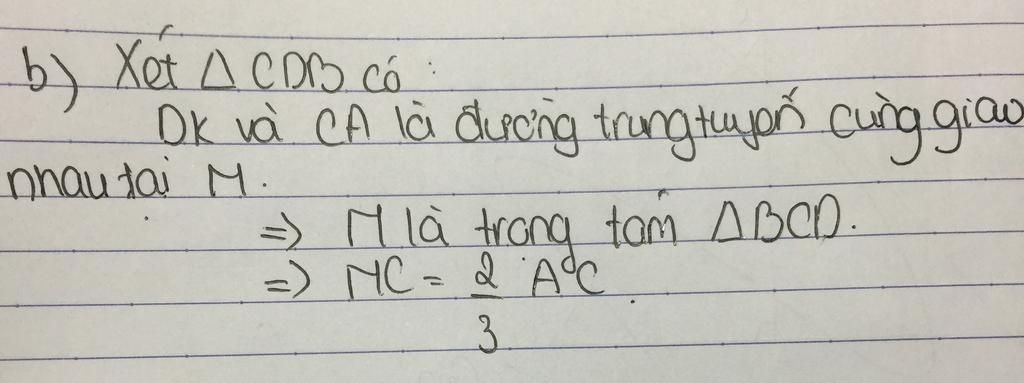 b) Xét Δ CDB có :
DK và CA là đường trung tuyến cùng giao
nhau tại M.
=> M là trọng tâm ΔBCD.
=> MC = 2/3 AC.